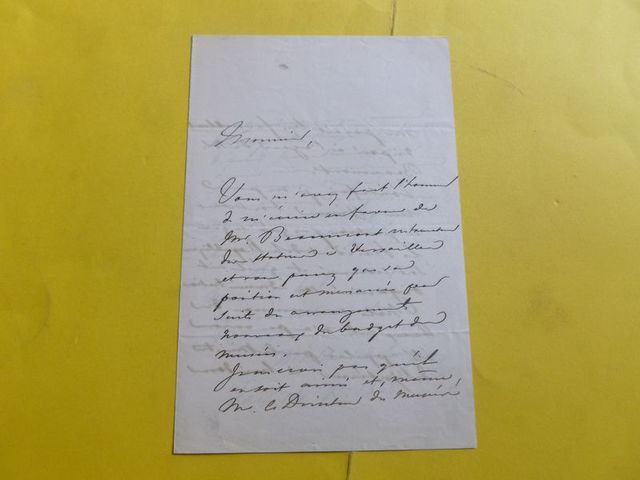 Monsieur,
Vous m'avez fait l'honneur
de m'écrire en faveur de
Mr. Beaumont
des Statues à Versailles
et vous pensez que sa
position est menacée par
suite des arrangements
nouveaux du budget des
musées.
Je ne crois pas qu'il
en soit ainsi et, même
M. le Directeur des Musées